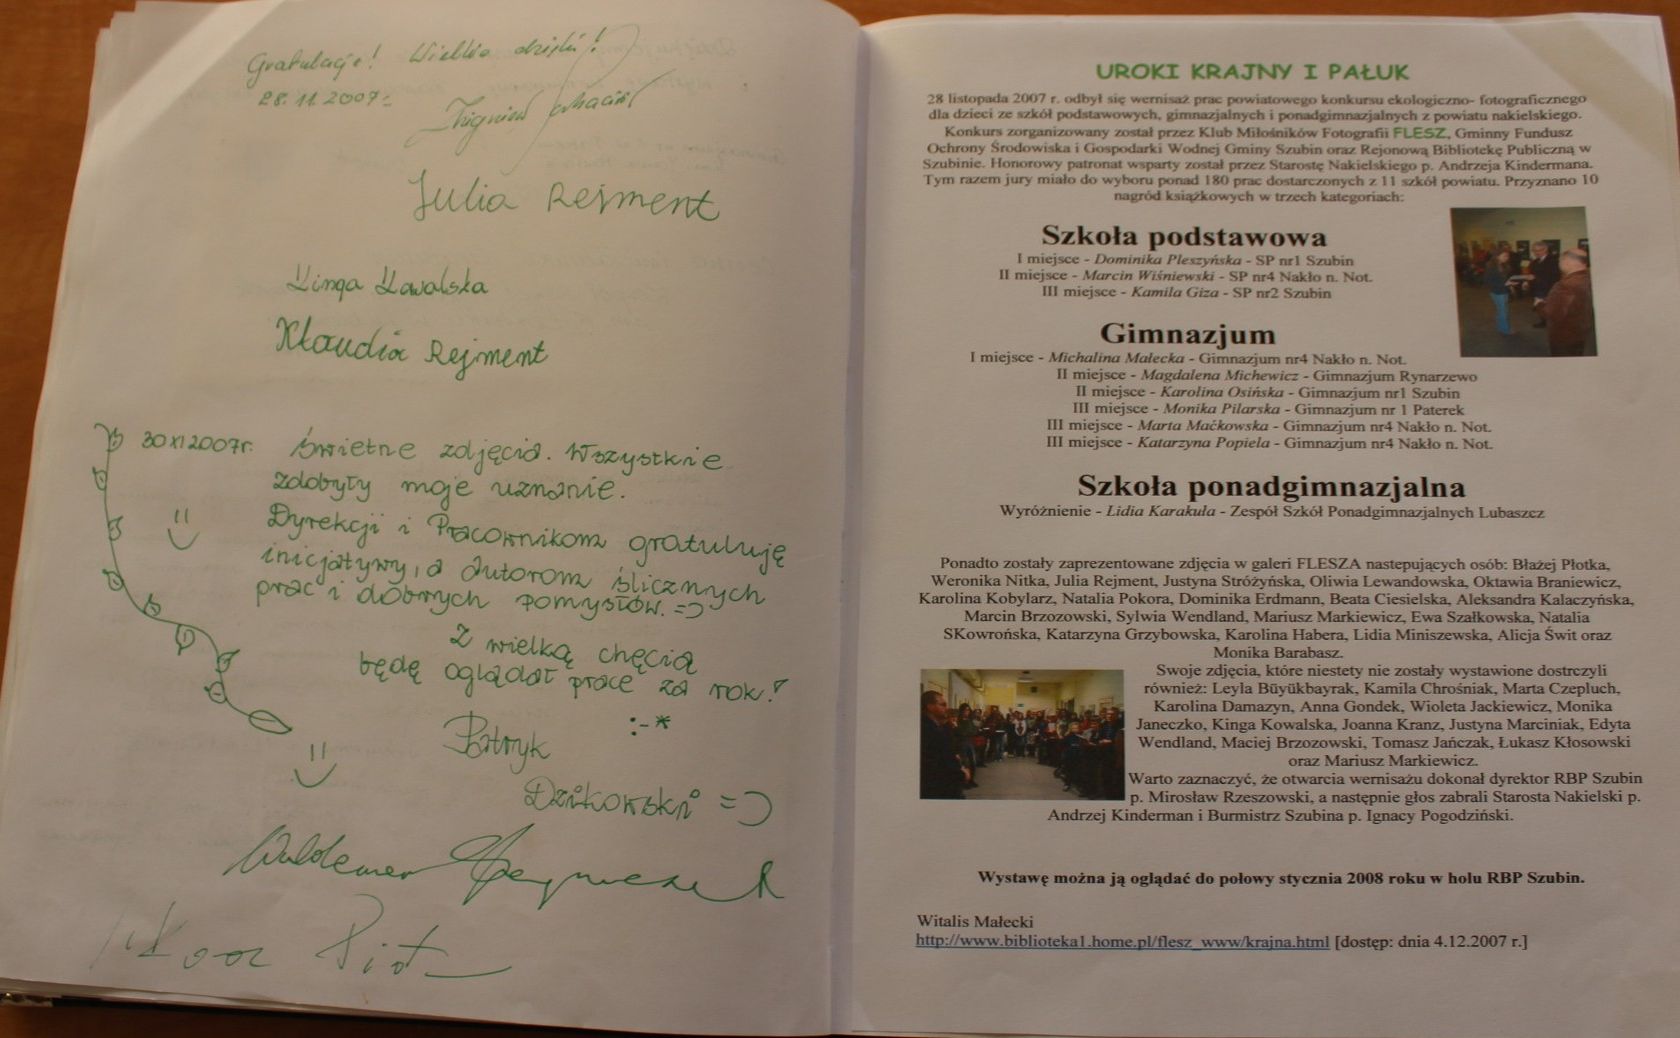 Gratulacje! Wielkie dzięki!
28.11.2007r.
Zbigniew
Julia Rejment
Kinga Kowalska
Klaudia Rejment
30 XI 2007r. Świetne zdjęcia. Wszystkie
zdobyły moje uznanie.
Dyrekcji i Pracownikom gratuluję
inicjatywy, a autorom ślicznych
prac i dobrych pomysłów. =)
Z wielką chęcią
będę oglądał prace za rok!
:-*
Patryk
Dzikowski =)
Waldemar
Piotr
UROKI KRAJNY I PAŁUK
28 listopada 2007 r. odbył się wernisaż prac powiatowego konkursu ekologiczno- fotograficznego
dla dzieci ze szkół podstawowych, gimnazjalnych i ponadgimnazjalnych z powiatu nakielskiego.
Konkurs zorganizowany został przez Klub Miłośników Fotografii FLESZ, Gminny Fundusz
Ochrony Środowiska i Gospodarki Wodnej Gminy Szubin oraz Rejonową Bibliotekę Publiczną w
Szubinie. Honorowy patronat wsparty został przez Starostę Nakielskiego p. Andrzeja Kindermana.
Tym razem jury miało do wyboru ponad 180 prac dostarczonych z 11 szkół powiatu. Przyznano 10
nagród książkowych w trzech kategoriach:
Szkoła podstawowa
I miejsce - Dominika Pleszyńska - SP nr1 Szubin
II miejsce - Marcin Wiśniewski - SP nr4 Nakło n. Not.
III miejsce - Kamila Giza - SP nr2 Szubin
Gimnazjum
I miejsce - Michalina Małecka - Gimnazjum nr4 Nakło n. Not.
II miejsce - Magdalena Michewicz - Gimnazjum Rynarzewo
II miejsce - Karolina Osińska - Gimnazjum nr1 Szubin
III miejsce - Monika Pilarska - Gimnazjum nr 1 Paterek
III miejsce - Marta Maćkowska - Gimnazjum nr4 Nakło n. Not.
III miejsce - Katarzyna Popiela - Gimnazjum nr4 Nakło n. Not.
Szkoła ponadgimnazjalna
Wyróżnienie - Lidia Karakuła - Zespół Szkół Ponadgimnazjalnych Lubaszcz
Ponadto zostały zaprezentowane zdjęcia w galeri FLESZA nastepujących osób: Błażej Płotka,
Weronika Nitka, Julia Rejment, Justyna Stróżyńska, Oliwia Lewandowska, Oktawia Braniewicz,
Karolina Kobylarz, Natalia Pokora, Dominika Erdmann, Beata Ciesielska, Aleksandra Kalaczyńska,
Marcin Brzozowski, Sylwia Wendland, Mariusz Markiewicz, Ewa Szałkowska, Natalia
SKowrońska, Katarzyna Grzybowska, Karolina Habera, Lidia Miniszewska, Alicja Świt oraz
Monika Barabasz.
Swoje zdjęcia, które niestety nie zostały wystawione dostrczyli
również: Leyla Büyükbayrak, Kamila Chrośniak, Marta Czepluch,
Karolina Damazyn, Anna Gondek, Wioleta Jackiewicz, Monika
Janeczko, Kinga Kowalska, Joanna Kranz, Justyna Marciniak, Edyta
Wendland, Maciej Brzozowski, Tomasz Jańczak, Łukasz Kłosowski
oraz Mariusz Markiewicz.
Warto zaznaczyć, że otwarcia wernisażu dokonał dyrektor RBP Szubin
p. Mirosław Rzeszowski, a następnie głos zabrali Starosta Nakielski p.
Andrzej Kinderman i Burmistrz Szubina p. Ignacy Pogodziński.
Wystawę można ją oglądać do połowy stycznia 2008 roku w holu RBP Szubin.
Witalis Małecki
http://www.biblioteka1.home.pl/flesz_www/krajna.html [dostęp: dnia 4.12.2007 r.]